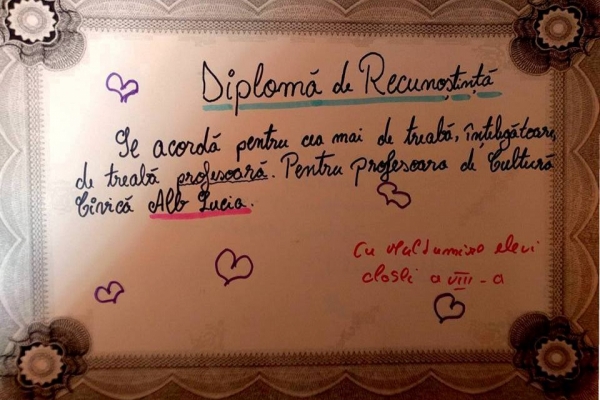 Diplomă de Recunoștință
Se acordă pentru cea mai de treabă, înțelegătoare,
de treabă profesoară. Pentru profesoara de Cultură
Civică Alb Lucia.
Cu multumire elevi
closei a VIII-a